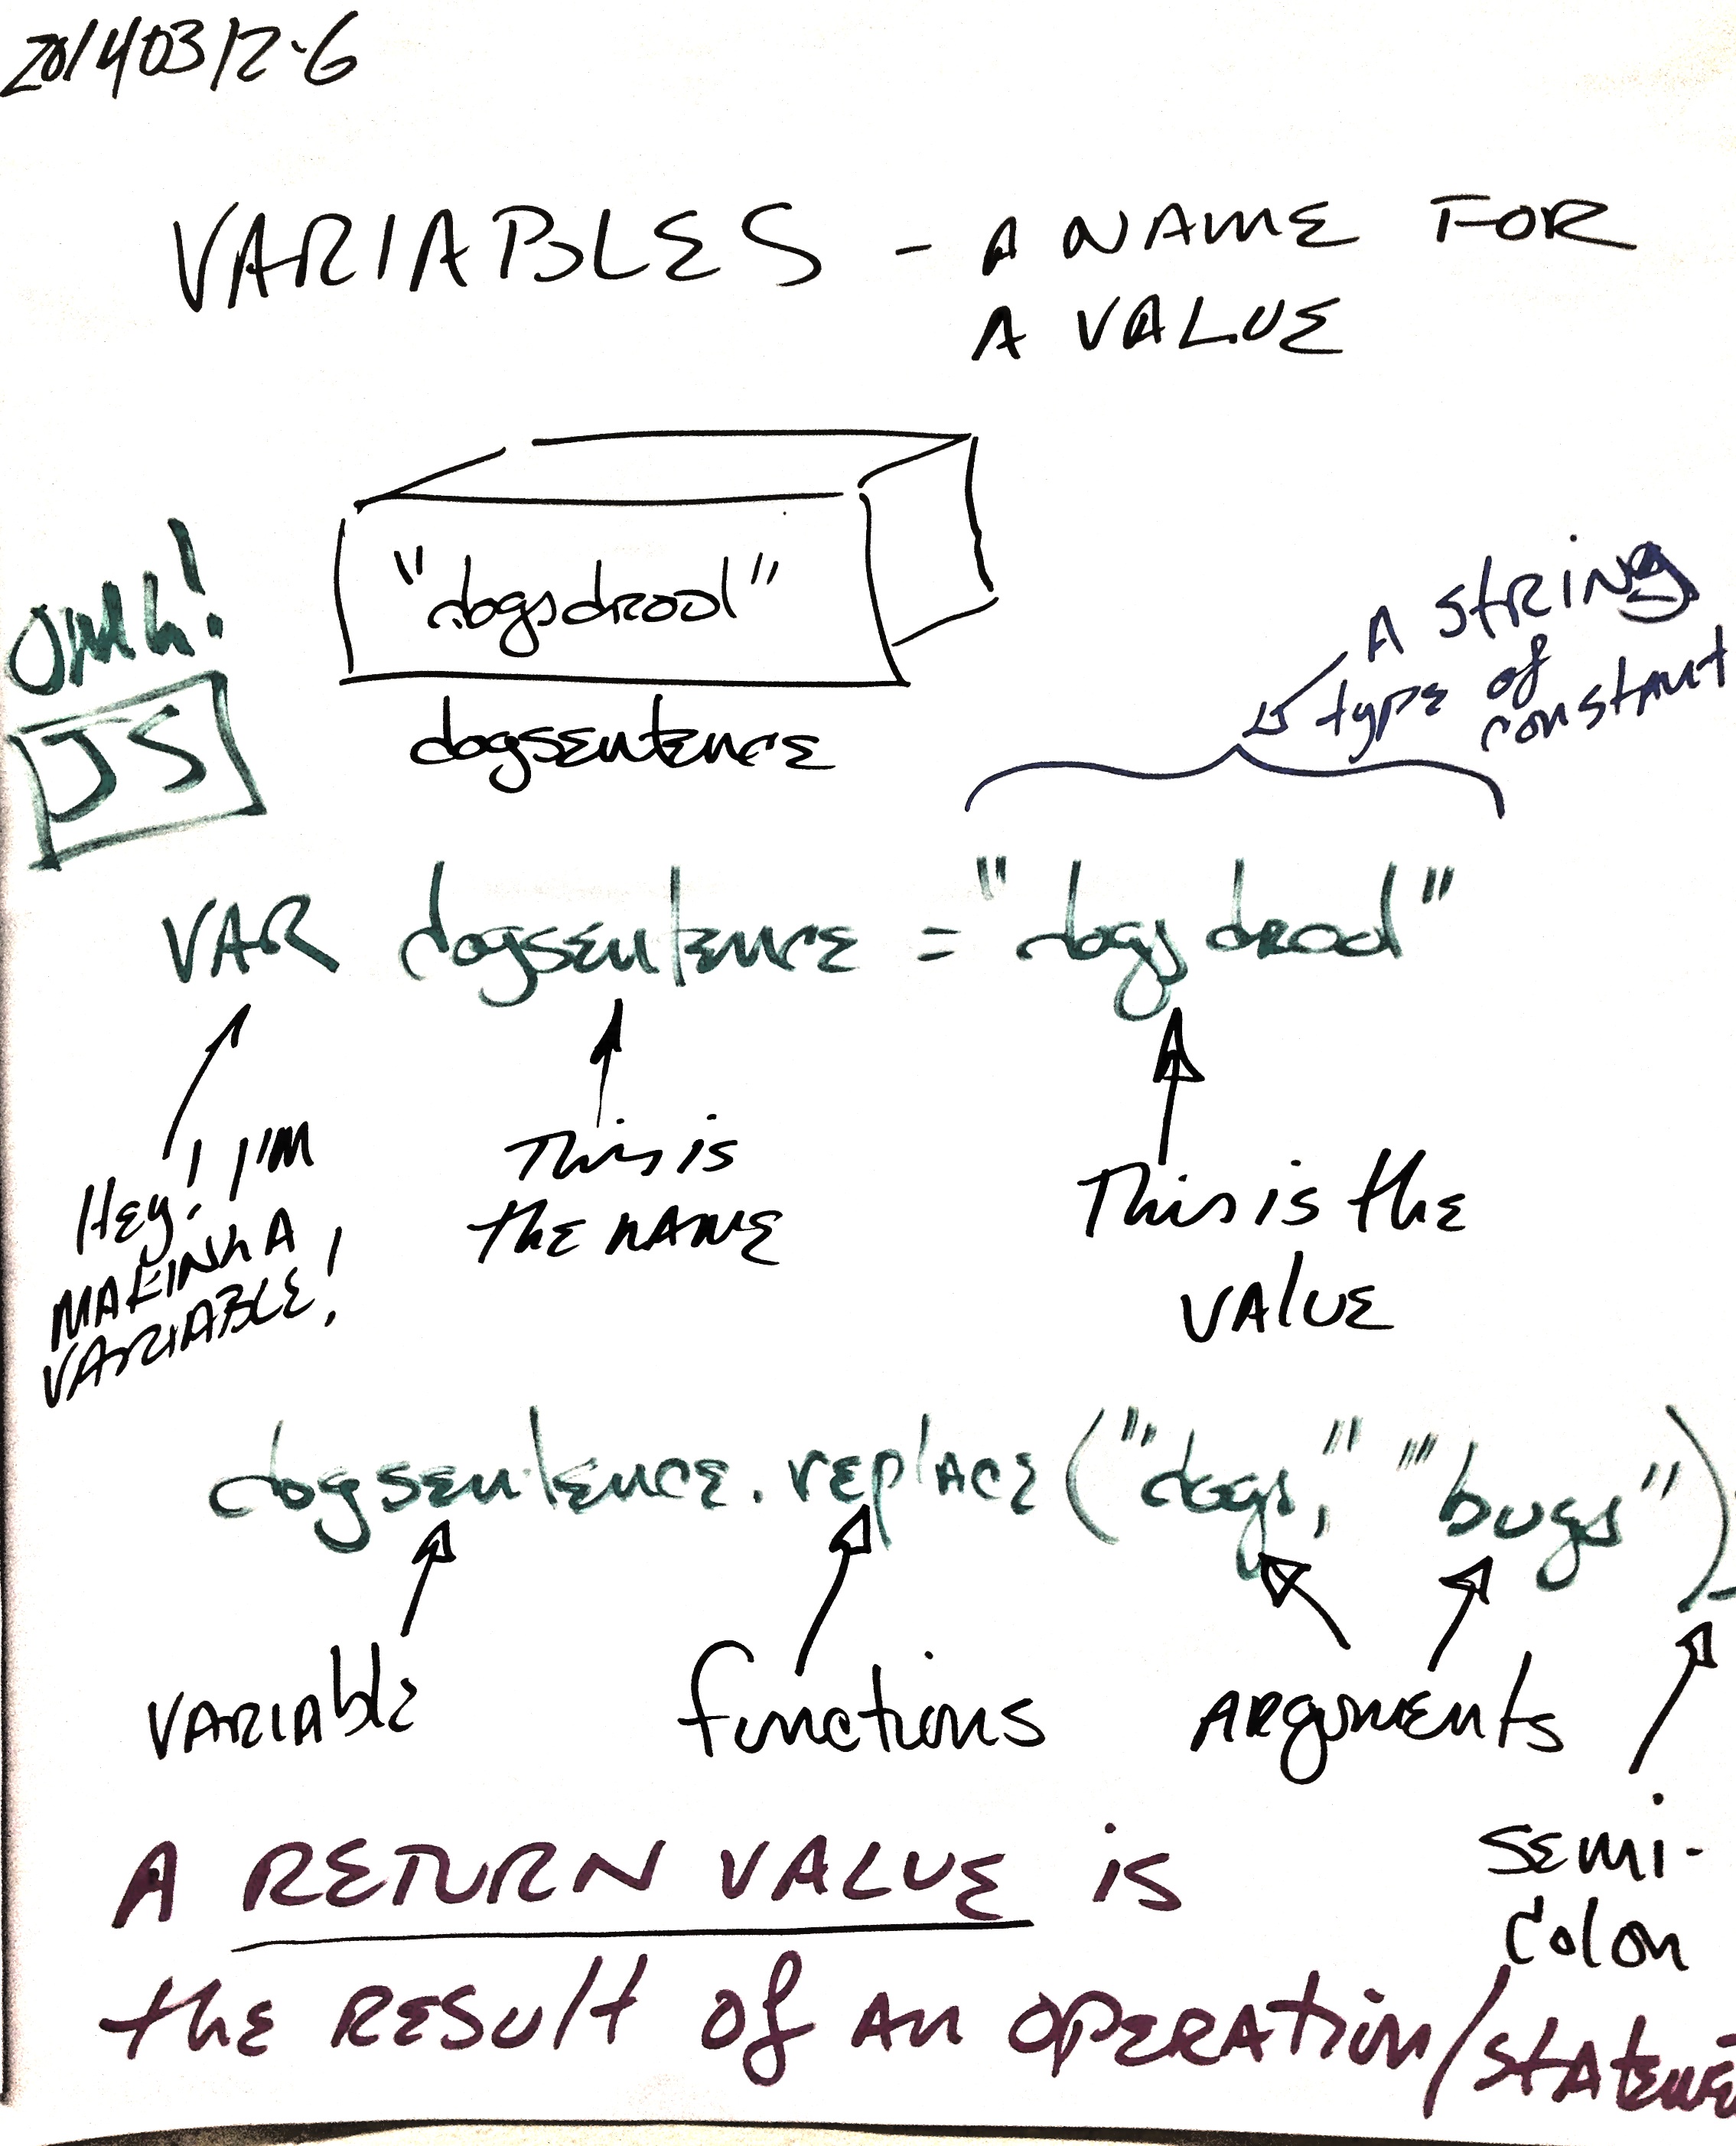 20140312-6
VARIABLES - A NAME FOR
A VALUE
"dogsdrool"
dogsentence
OMG!
JS
A string
type of
constant
VAR dogsentence = "dogs drool"
Hey! I'M
MAKING A
VARIABLE!
This is
the NAME
This is the
VALUE
dogsentence.replace("dogs," "bugs")
VARIABLE
functions
ARguments
SEMI-
Colon
A RETURN VALUE is
the RESult of AN OPERAtion/stateme